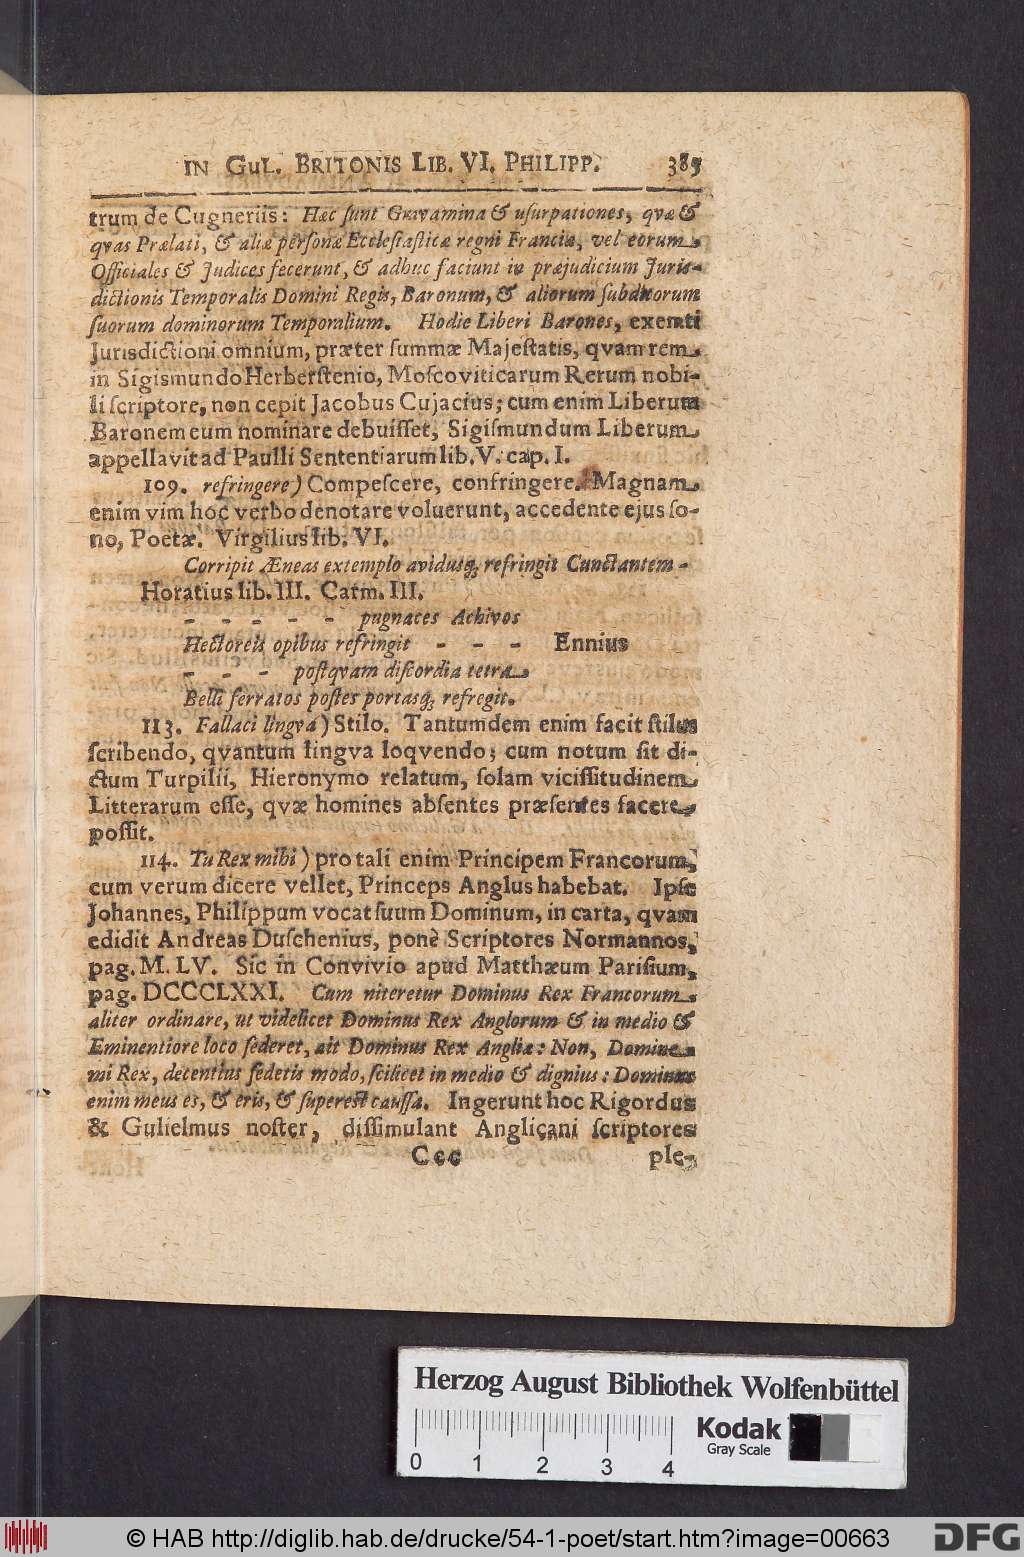 IN GUL. BRITONIS LIB. VI. PHILIPP. 385
trum de Cugneriis: Hæc ſunt Gravamina & uſurpationes, qvæ &
qvas Prælati, & aliæ perſonæ Eccleſiaſticæ regni Franciæ, vel eorum
Officiales & Judices fecerunt, & adhuc faciunt in præjudicium Juris-
dictionis Temporalis Domini Regis, Baronum, & aliorum ſubditorum
ſuorum dominorum Temporalium. Hodie Liberi Barones, exemti
Jurisdictioni omnium, præter ſummæ Majeſtatis, qvam rem
in Sigismundo Herberſtenio, Moſcoviticarum Rerum nobi-
li ſcriptore, non cepit Jacobus Cujacius; cum enim Liberum
Baronem eum nominare debuiſſet, Sigiſmundum Liberum
appellavit ad Paulli Sententiarum lib. V. cap. I.
109. refringere) Compeſcere, confringere. Magnam
enim vim hoc verbo denotare voluerunt, accedente ejus ſo-
no, Poetæ. Virgilius lib. VI.
Corripit Æneas extemplo avidusq; refringit Cunctantem -
Horatius lib. III. Carm. III.
- - - - - pugnaces Achivos
Hectoreis opibus refringit - - - Ennius
- - - poſtqvam diſcordia tetra
Belli ferratos poſtes portasq; refregit.
113. Fallaci lingva) Stilo. Tantumdem enim facit ſtilus
ſcribendo, qvantum lingva loqvendo; cum notum ſit di-
ctum Turpilii, Hieronymo relatum, ſolam viciſſitudinem
Litterarum eſſe, qvæ homines abſentes præſentes facere
poſſit.
114. Tu Rex mihi) pro tali enim Principem Francorum,
cum verum dicere vellet, Princeps Anglus habebat. Ipſe
Johannes, Philippum vocat ſuum Dominum, in carta, qvam
edidit Andreas Duſchenius, ponè Scriptores Normannos,
pag. M. LV. Sic in Convivio apud Matthæum Pariſium,
pag. DCCCCLXXI. Cum niteretur Dominus Rex Francorum
aliter ordinare, ut videlicet Dominus Rex Anglorum & in medio &
Eminentiore loco ſederet, ait Dominus Rex Angliæ: Non, Domine
mi Rex, decentius ſedetis modo, ſcilicet in medio & dignius: Dominus
enim meus es, & eris, & ſupereſt cauſſa. Ingerunt hoc Rigordus
& Gulielmus noſter, diſſimulant Anglicani ſcriptores
Ccc ple-
Herzog August Bibliothek Wolfenbüttel
Kodak
Gray Scale
0 1 2 3 4
© HAB http://diglib.hab.de/drucke/54-1-poet/start.htm?image=00663
DFG